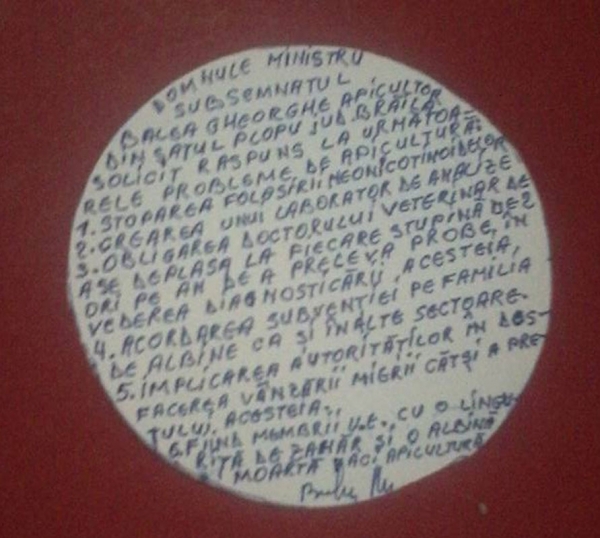 DOMNULE MINISTRU
SUBSEMNATUL
BALEA GHEORGHE APICULTOR
DIN SATUL PLOPU JUD BRĂILA
SOLICIT RASPUNS LA URMĂTOA-
RELE PROBLEME DE APICULTURĂ:
1. STOPAREA FOLASIRII NEONICOTINOIDELOR
2. CREAREA UNUI LABORATOR DE ANALIZE
3. OBLIGAREA DOCTORULUI VETERINAR DE
A SE DEPLASA LA FIECARE STUPINĂ DE 2
ORI PE AN DE A PRELEVA PROBE, ÎN
VEDEREA DIAGNOSTICĂRII ACESTEIA,
4. ACORDAREA SUBVENȚIEI PE FAMILIA
DE ALBINE CA ȘI ÎN ALTE SECTOARE.
5. IMPLICAREA AUTORITĂȚILOR ÎN DES-
FACEREA VÂNZĂRII MIERII CÂT ȘI A PRE-
ȚULUI ACESTEIA.
6. FIIND MEMBRII U.E., CU O LINGU-
RIȚĂ DE ZAHĂR ȘI O ALBINĂ
MOARTĂ FACI APICULTURĂ